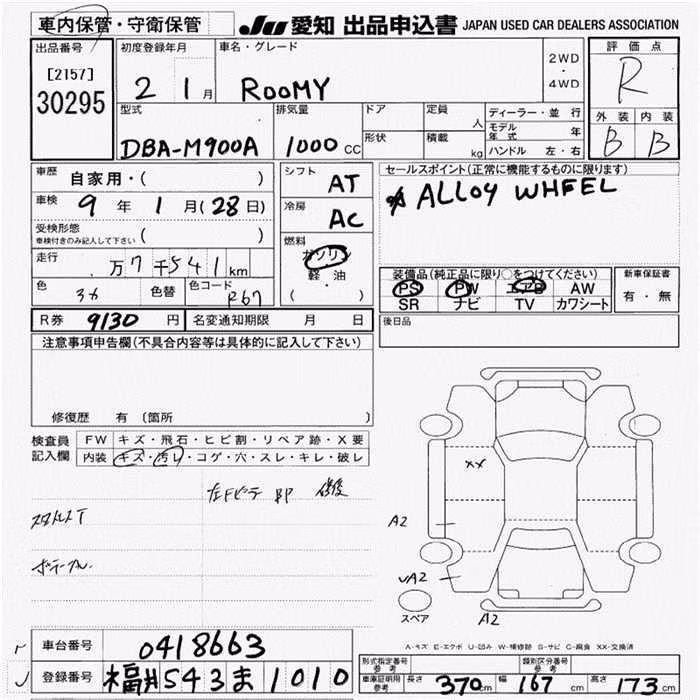 車内保管・守衛保管
JU 愛知 出品申込書 JAPAN USED CAR DEALERS ASSOCIATION
出品番号 初度登録年月 車名・グレード 2WD・4WD 評価点
[2157] 2 1月 ROOMY R
30295
型式 排気量 ドア 定員 人 ディーラー・並行 外装 内装
DBA-M900A 1000cc 形状 積載 kg モデル年式 年 B B
ハンドル 左・右
車歴 自家用・( ) シフト AT セールスポイント(正常に機能するものに限ります)
車検 9年 1月(28日) 冷房 AC ALLOY WHEEL
受検形態 車検付きのみ記入して下さい ( )
燃料 ガソリン 軽油 ( ・ )
走行 .万7千541km
色 36 色替 色コード R67
装備品(純正品に限り○をつけてください) 新車保証書
PS PW エアB AW 有・無
SR ナビ TV カワシート
R券 9130円 名変通知期限 月 日 後日品
注意事項申告欄(不具合内容等は具体的に記入して下さい)
修復歴 有 〔箇所
検査員記入欄 FW キズ・飛石・ヒビ割・リペア跡・X要
内装 キズ・汚レ・コゲ・穴・スレ・キレ・破レ
XX
A2
A2
スペア A2
A-キズ E-エクボ U-凹み W-補修跡 S-サビ C-腐食 XX-交換済
車台番号 0418663
登録番号 福井543ま1010
形式指定番号 参考 類別区分番号 参考
車庫証明用 参考 長さ 370cm 幅 167cm 高さ 173cm